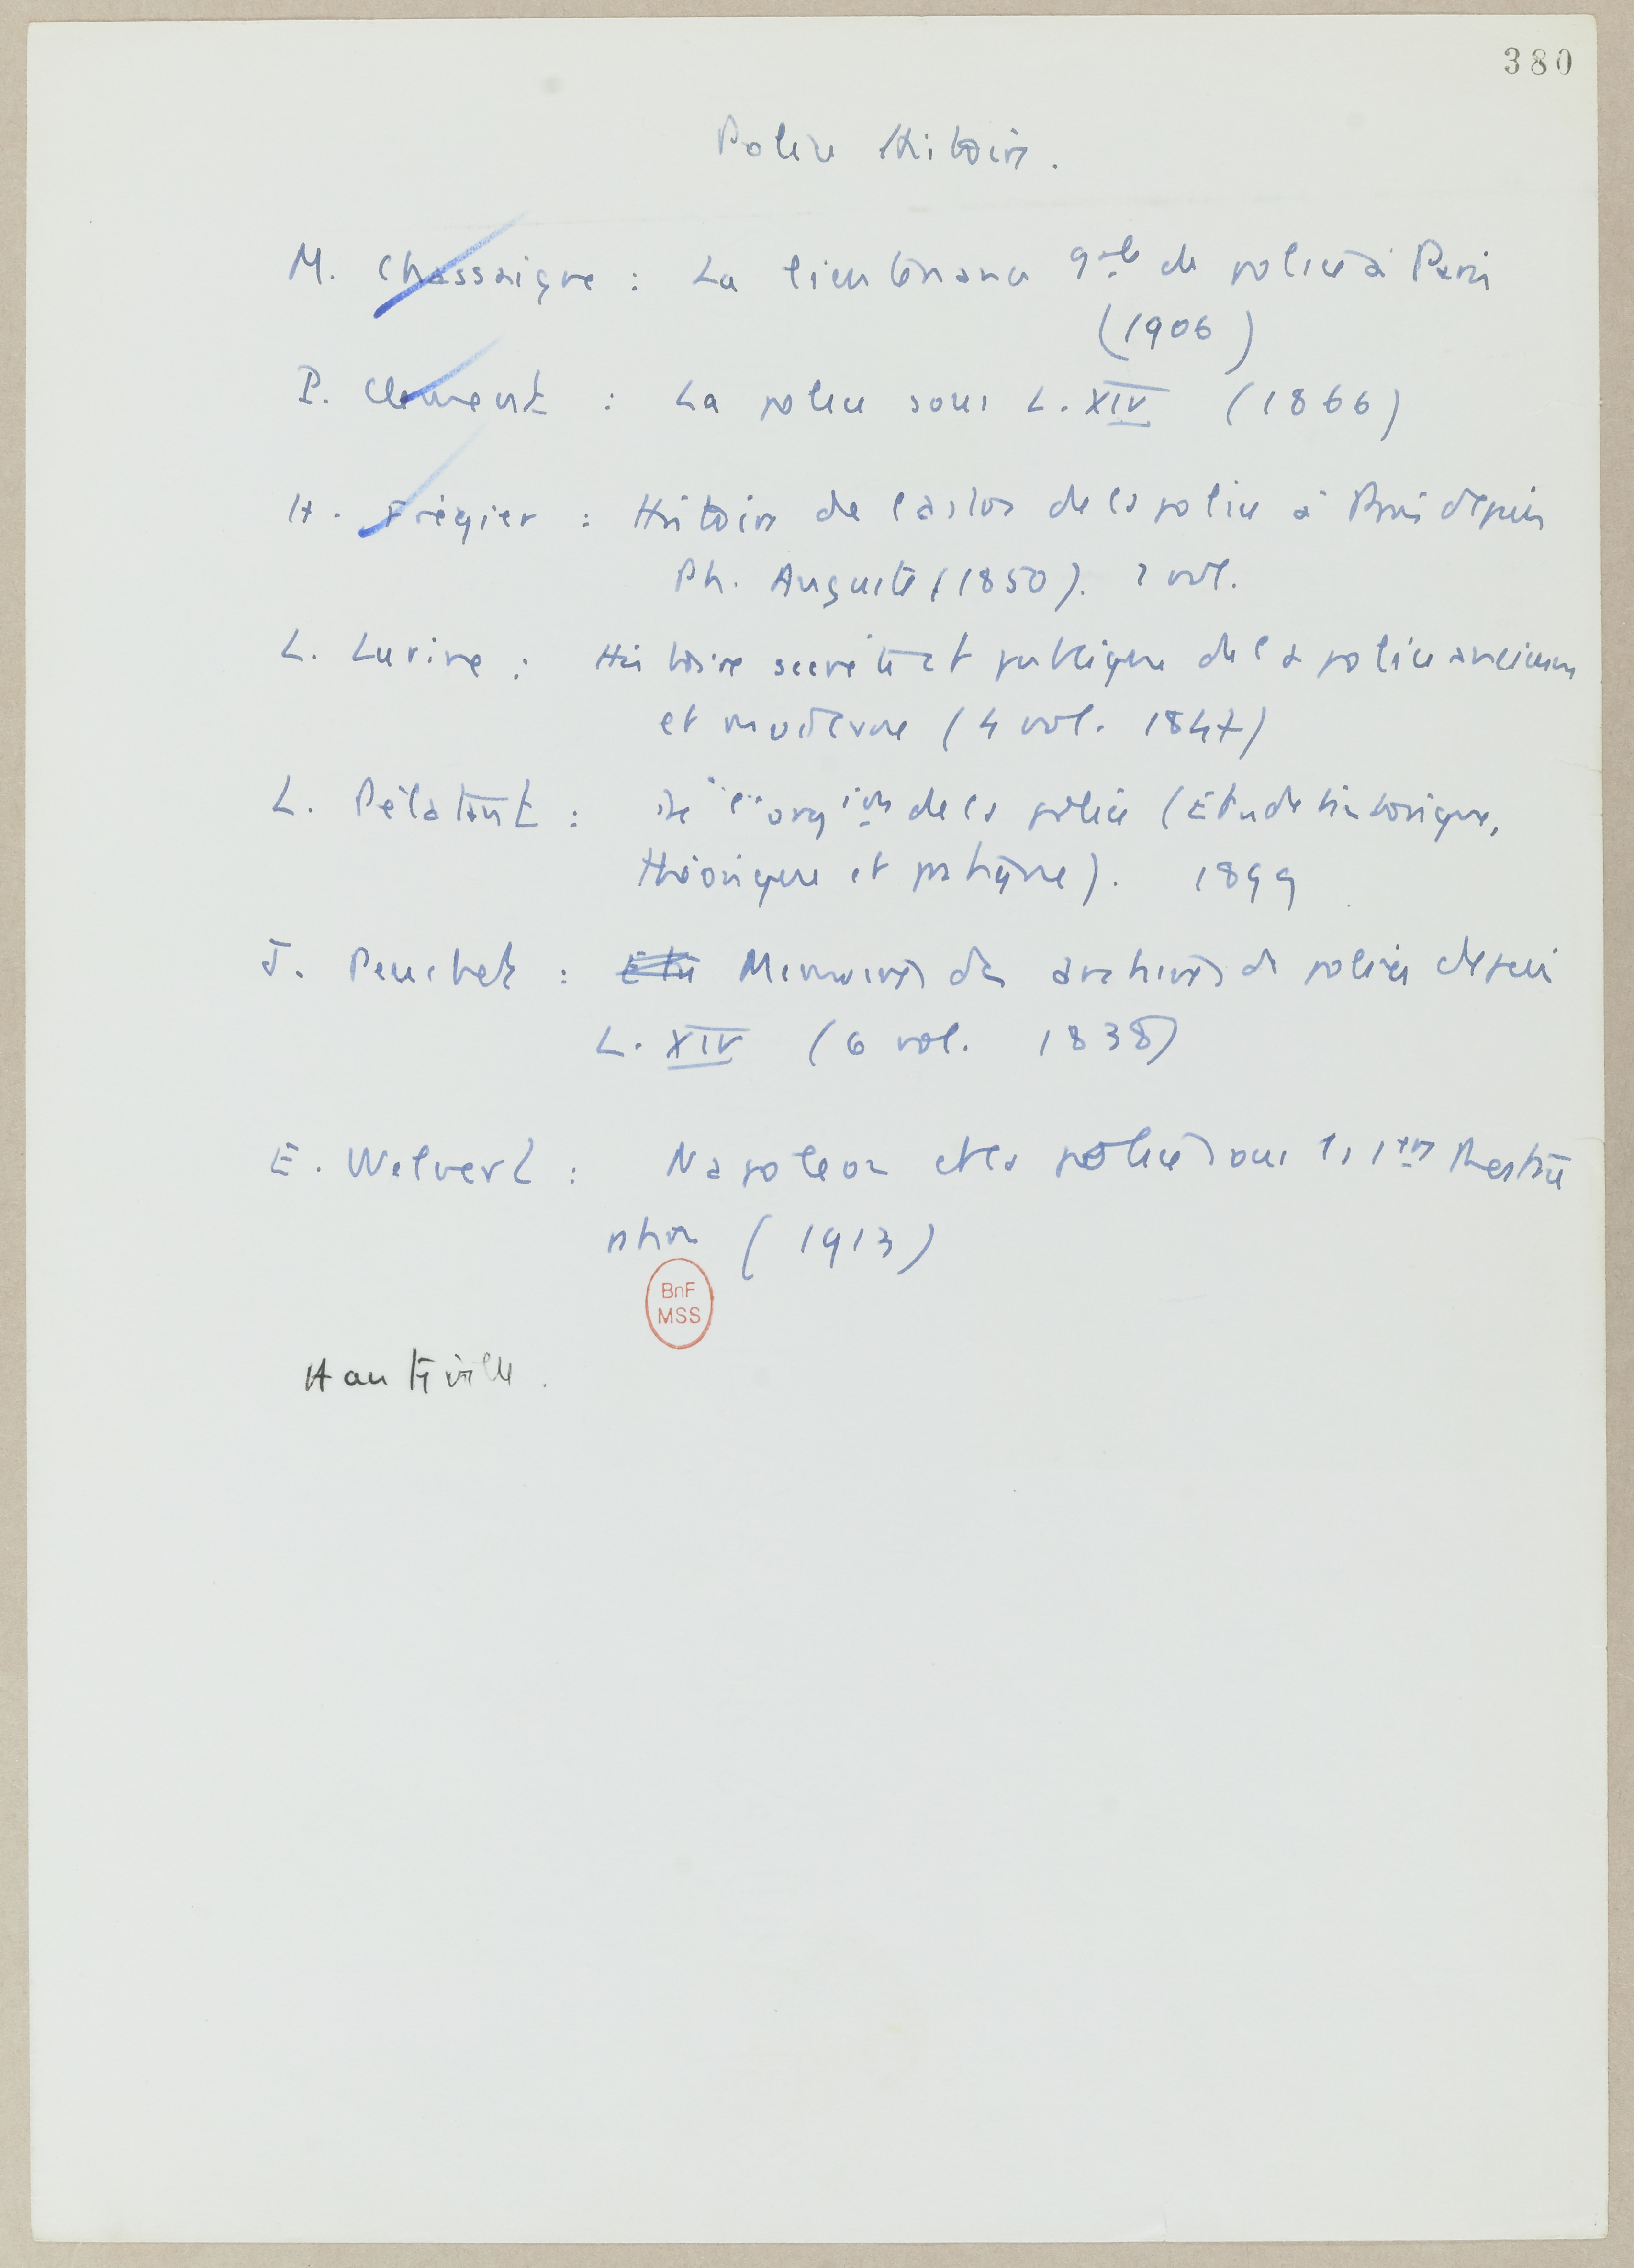 380
Police Histoire.
M. Chassaigne : La lieutenance gale de police à Paris
(1906)
P. Clement : La police sous L. XIV (1866)
H. Frégier : Histoire de l'adion de la police à Paris depuis
Ph. Auguste (1850). 2 vol.
L. Lurine : Histoire secrète et publique de la police ancienne
et moderne (4 vol. 1847)
L. Pélatant : De l'orgion de la police (Etude historique,
théorique et pratique). 1899
J. Peuchet : Memoires des archives de police depuis
L. XIV (6 vol. 1838)
E. Welvert : Napoleon et la police sous la 1ere Restau
ration (1913)
BnF
MSS
Hauteville.